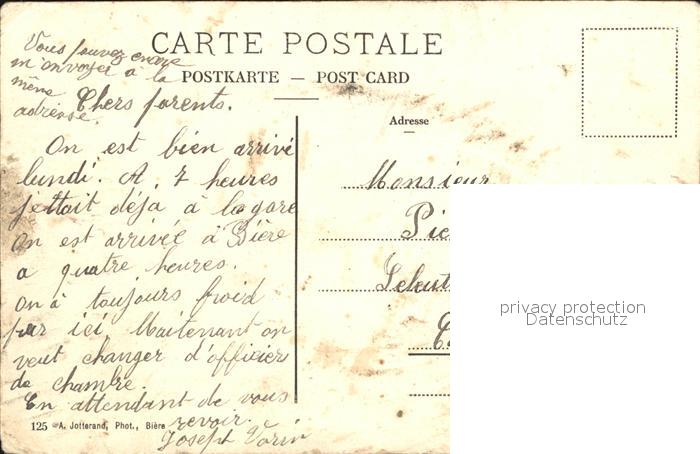 Vous pouvez encore
m'envoyer à la
même
adresse.
CARTE POSTALE
POSTKARTE — POST CARD
Chers parents.
On est bien arrivé
lundi. A 7 heures
j'ettait déja à la gare
On est arrivée à Bière
a quatre heures.
On à toujours froid
par ici. Maitenant on
veut changer d'officier
de chambre.
En attendant de vous
revoir.
Joseph
Adresse
Monsieur
Pie
C
125 A. Jotterand, Phot., Bière
privacy protection
Datenschutz